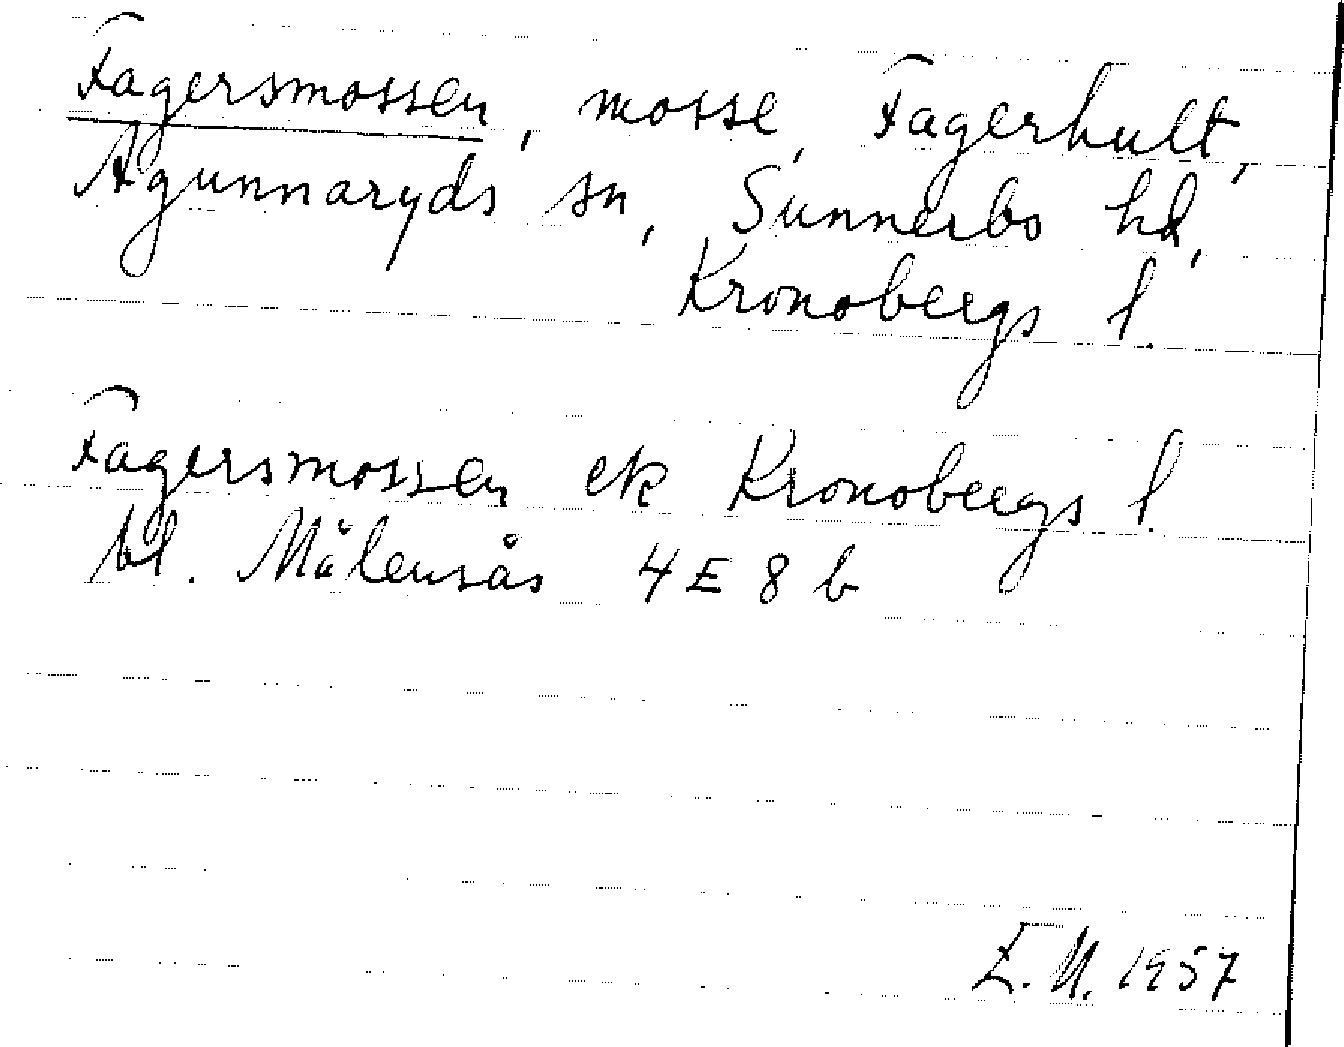 Fagersmossen, mosse, Fagerhult,
Agunnaryds sn, Sunnerbo hd,
Kronobergs l.
Fagersmossen ek Kronobergs l.
bl. Målensås 4E8b
E.U. 1957